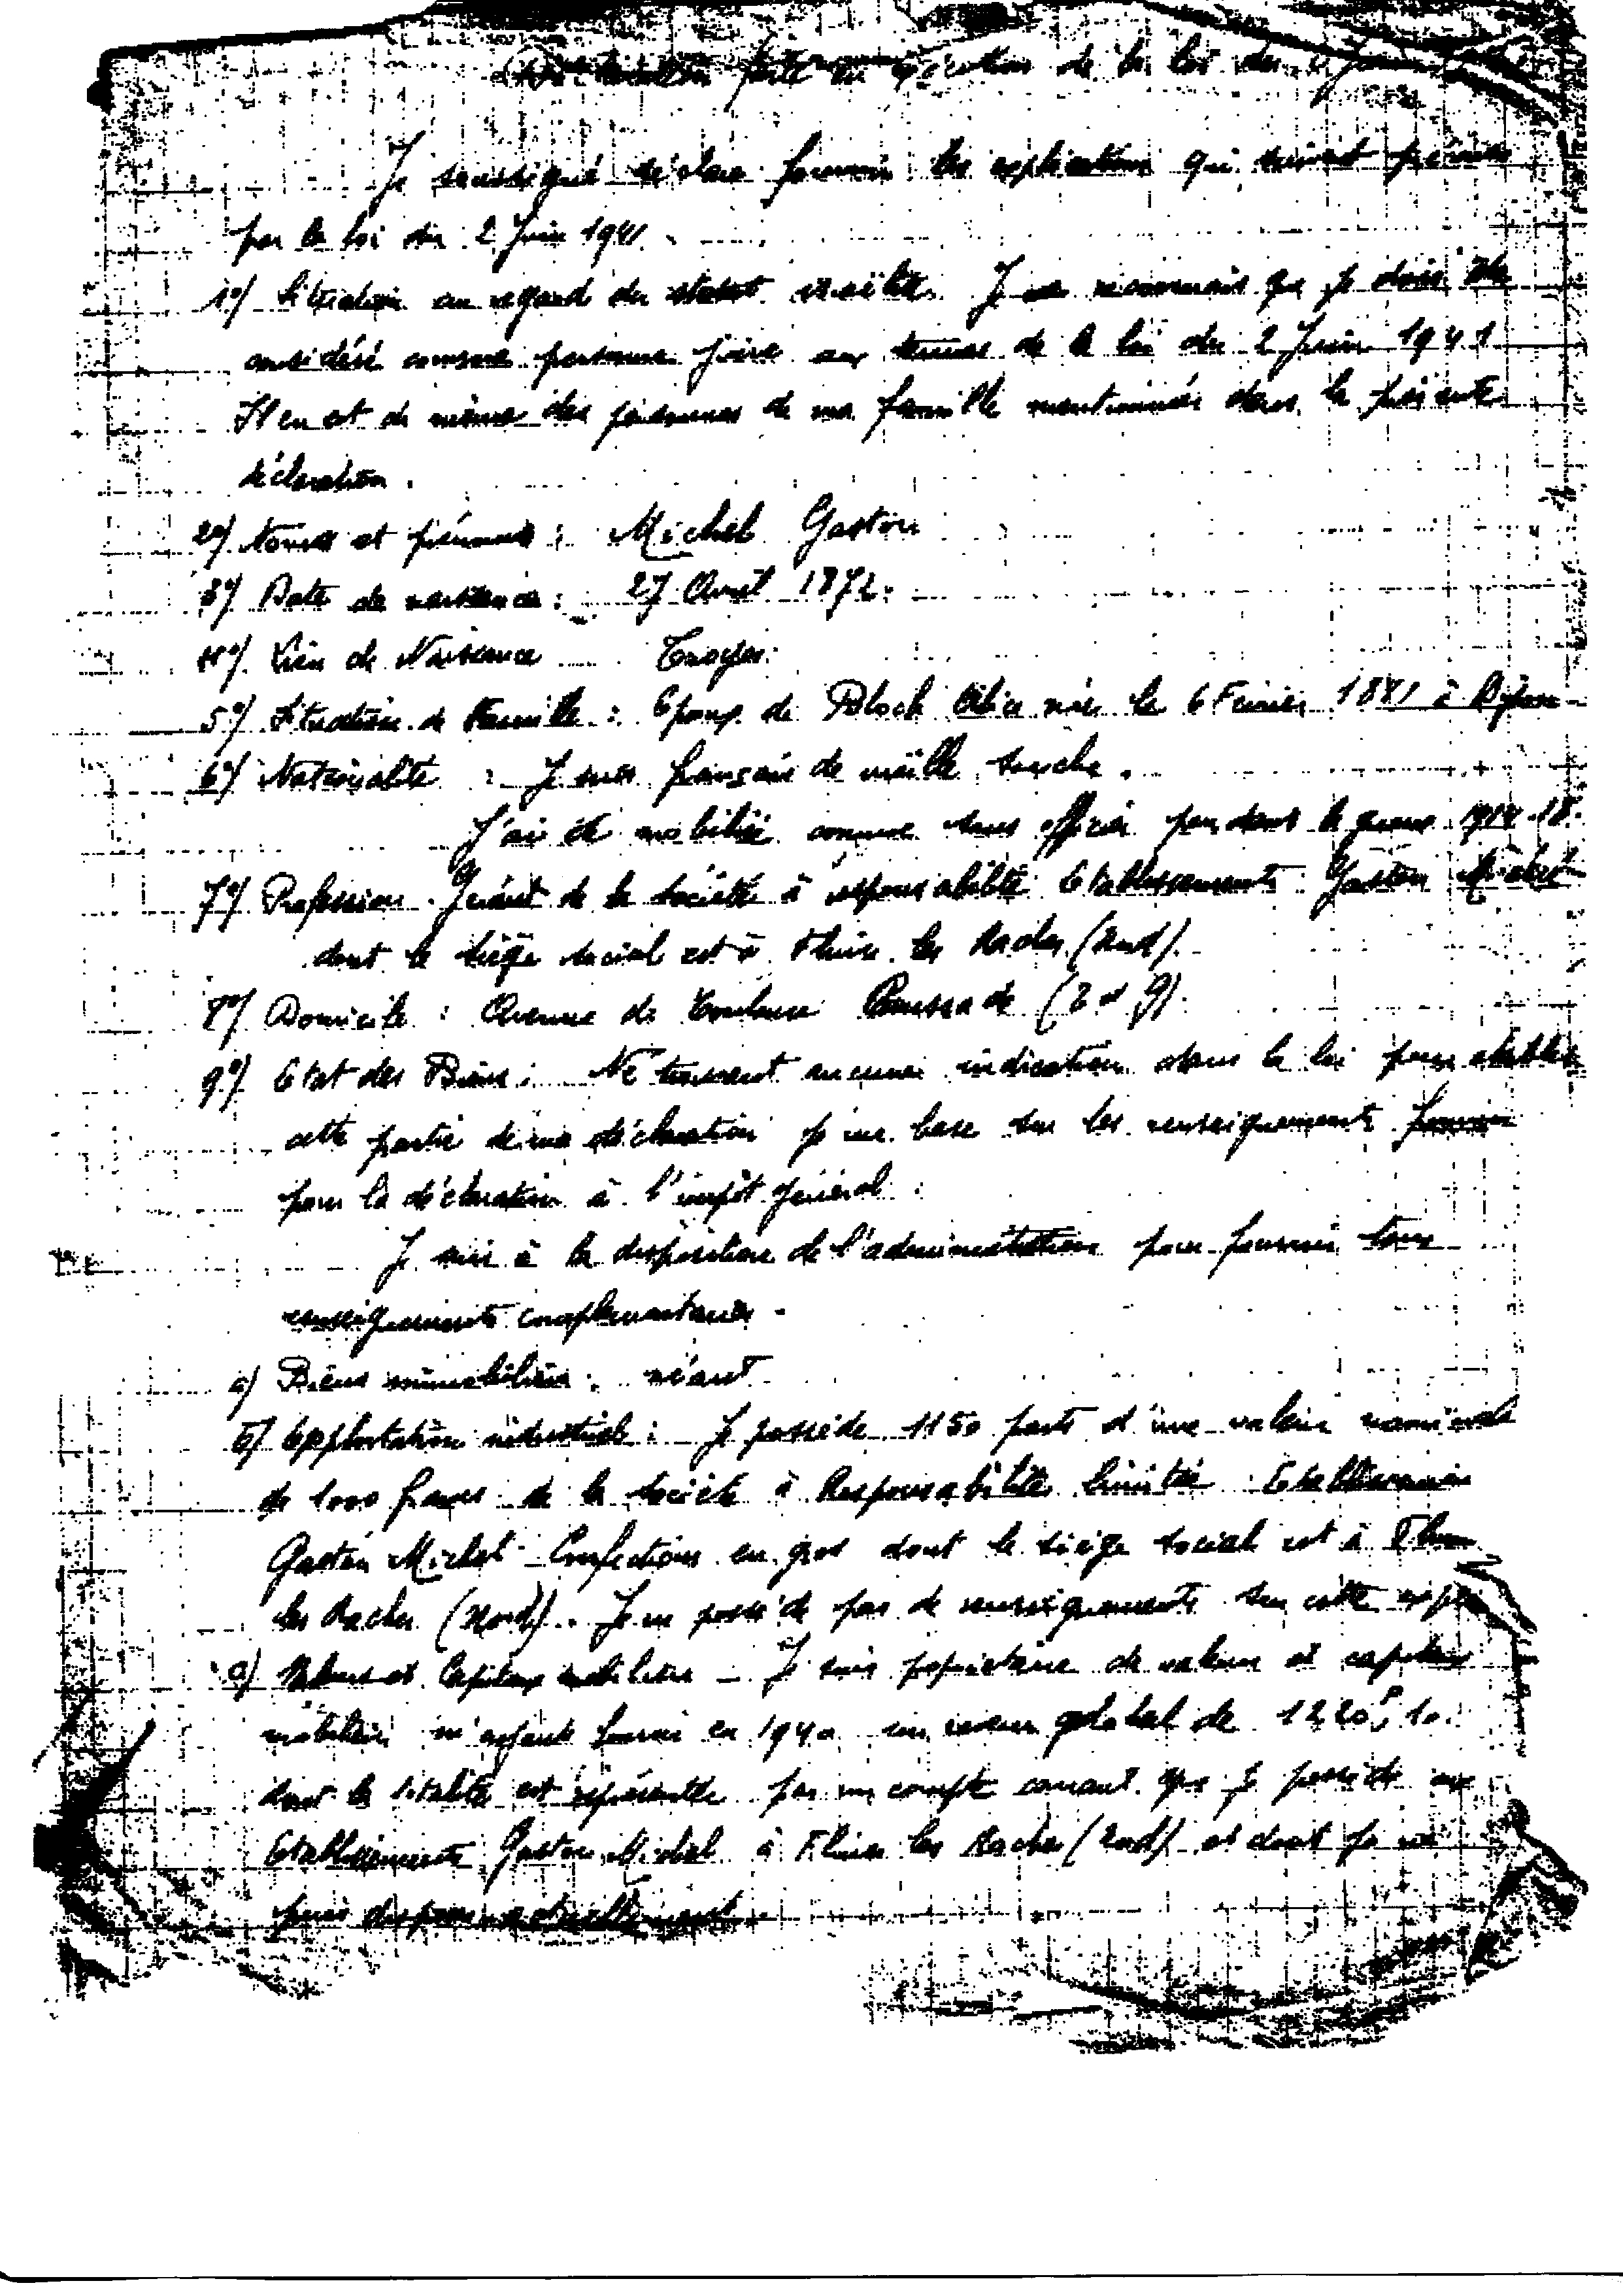 Déclaration faite en exécution de la loi du 2 Juin
Je soussigné déclare fournir les explications qui suivent prévues
par la loi du 2 Juin 1941.
1º/ Situation au regard du statut israëlite. Je reconnais que je dois être
considéré comme personne juive aux termes de la loi du 2 Juin 1941
Il en est de même des personnes de ma famille mentionnées dans la présente
déclaration.
2º/ Noms et prénoms : Michel Gaston
3º/ Date de naissance : 27 Avril 1872.
4º/ Lieu de Naissance Troyes.
5º/ Situation de Famille : Epoux de Bloch Alice née le 6 Février 1881 à Dijon
6º/ Nationalité : Je suis français de vieille souche.
J'ai été mobilisé comme sous officier pendant la guerre 1914-18.
7º/ Profession Gérant de la société à responsabilité Etablissements Gaston Michel
dont le siège social est à Flines les Raches (Nord).
8º/ Domicile : Avenue de Toulouse Caussade (T et G).
9º/ Etat des Biens : Ne trouvant aucune indication dans la loi pour établir
cette partie de ma déclaration je me base sur les renseignements fournis
pour la déclaration à l'impôt général.
Je suis à la disposition de l'administration pour fournir tous
renseignements complémentaires.
a) Biens immobiliers : néant
b) Exploitation industriel : Je possède 1150 parts d'une valeur nominale
de 1000 francs de la Société à Responsabilité limitée Etablissements
Gaston Michel Confections en gros dont le siège social est à Flines
les Raches (Nord). Je ne possède pas de renseignements sur cette
c) Valeurs et Capitaux mobiliers - Je suis propriétaire de valeurs et capitaux
mobiliers m'ayant fourni en 1940 un revenu global de
dont la totalité est représentée par un compte courant que je possède aux
Etablissements Gaston Michel à Flines les Raches (Nord) et dont je ne
puis disposer actuellement.